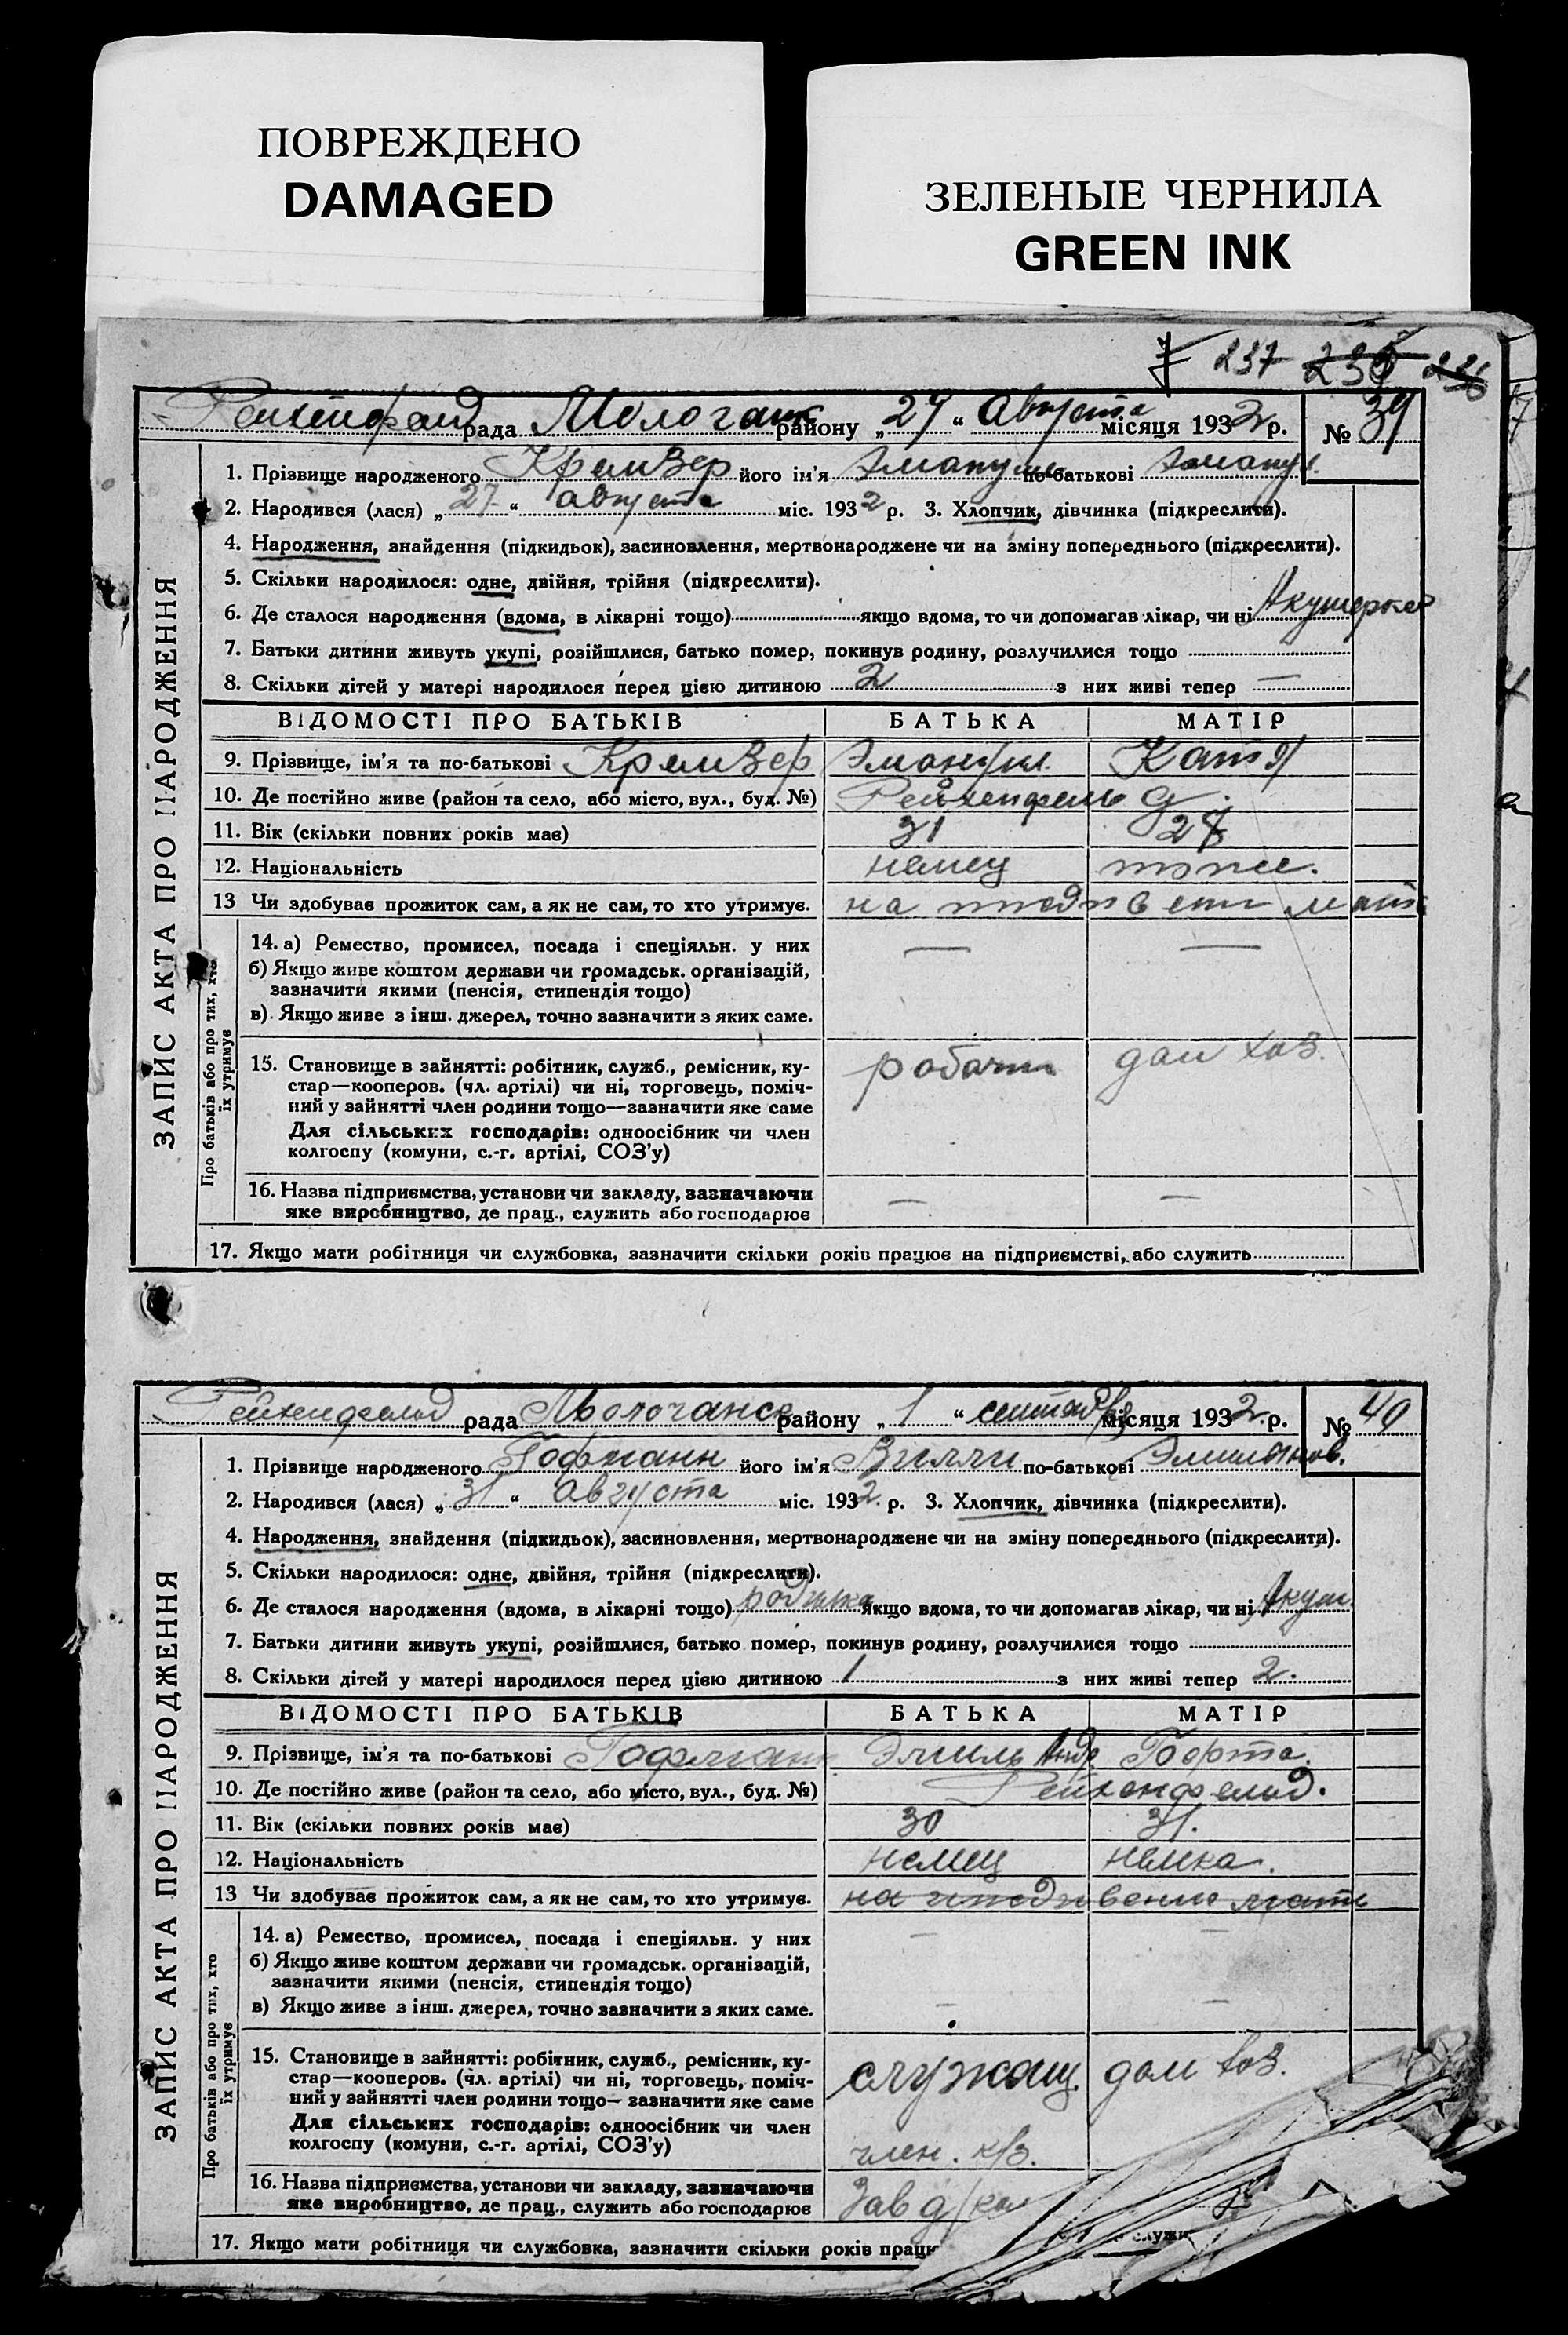 ПОВРЕЖДЕНО
DAMAGED
ЗЕЛЕНЫЕ ЧЕРНИЛА
GREEN INK
237 236
рада Молочанск району „29“ Августа місяця 1932 р. № 39
1. Прізвище народженого його ім'я по-батькові
2. Народився (лася) „27“ августа міс. 1932 р. 3. Хлопчик, дівчинка (підкреслити).
4. Народження, знайдення (підкидьок), засиновлення, мертвонароджене чи на зміну попереднього (підкреслити).
5. Скільки народилося: одне, двійня, трійня (підкреслити).
6. Де сталося народження (вдома, в лікарні тощо) якщо вдома, то чи допомагав лікар, чи ні Акушерка
7. Батьки дитини живуть укупі, розійшлися, батько помер, покинув родину, розлучилися тощо
8. Скільки дітей у матері народилося перед цією дитиною 2 з них живі тепер —
ВІДОМОСТІ ПРО БАТЬКІВ БАТЬКА МАТІР
9. Прізвище, ім'я та по-батькові Катя
10. Де постійно живе (район та село, або місто, вул., буд. №)
11. Вік (скільки повних років має) 31
12. Національність немец тоже.
13 Чи здобуває прожиток сам, а як не сам, то хто утримує. на
14. а) Ремество, промисел, посада і спеціяльн. у них — —
б) Якщо живе коштом держави чи громадськ. організацій,
зазначити якими (пенсія, стипендія тощо)
в) Якщо живе з інш. джерел, точно зазначити з яких саме.
15. Становище в зайнятті: робітник, служб., ремісник, ку-
стар—кооперов. (чл. артілі) чи ні, торговець, поміч-
ний у зайнятті член родини тощо—зазначити яке саме
Для сільських господарів: одноосібник чи член
колгоспу (комуни, с.-г. артілі, СОЗ'у)
рабочий дом хоз.
16. Назва підприємства, установи чи закладу, зазначаючи
яке виробництво, де прац., служить або господарює — —
17. Якщо мати робітниця чи службовка, зазначити скільки років працює на підприємстві, або служить
ЗАПИС АКТА ПРО НАРОДЖЕННЯ
Про батьків або про тих, хто
їх утримує
Рейхенфельд рада Молочанск району „1“ сентября місяця 1932 р. № 40
1. Прізвище народженого Гофманн його ім'я Вилли по-батькові Эмильянов.
2. Народився (лася) „31“ Августа міс. 1932 р. 3. Хлопчик, дівчинка (підкреслити).
4. Народження, знайдення (підкидьок), засиновлення, мертвонароджене чи на зміну попереднього (підкреслити).
5. Скільки народилося: одне, двійня, трійня (підкреслити).
6. Де сталося народження (вдома, в лікарні тощо) якщо вдома, то чи допомагав лікар, чи ні Акуш.
7. Батьки дитини живуть укупі, розійшлися, батько помер, покинув родину, розлучилися тощо
8. Скільки дітей у матері народилося перед цією дитиною 1 з них живі тепер 2.
ВІДОМОСТІ ПРО БАТЬКІВ БАТЬКА МАТІР
9. Прізвище, ім'я та по-батькові Гофманн Эмиль Анд
10. Де постійно живе (район та село, або місто, вул., буд. №) Рейхенфельд.
11. Вік (скільки повних років має) 30 31.
12. Національність немец немка.
13 Чи здобуває прожиток сам, а як не сам, то хто утримує.
14. а) Ремество, промисел, посада і спеціяльн. у них — —
б) Якщо живе коштом держави чи громадськ. організацій,
зазначити якими (пенсія, стипендія тощо)
в) Якщо живе з інш. джерел, точно зазначити з яких саме. — —
15. Становище в зайнятті: робітник, служб., ремісник, ку-
стар—кооперов. (чл. артілі) чи ні, торговець, поміч-
ний у зайнятті член родини тощо—зазначити яке саме
Для сільських господарів: одноосібник чи член
колгоспу (комуни, с.-г. артілі, СОЗ'у)
служащ. дом хоз.
член. к/з.
16. Назва підприємства, установи чи закладу, зазначаючи
яке виробництво, де прац., служить або господарює
17. Якщо мати робітниця чи службовка, зазначити скільки років працю служи
ЗАПИС АКТА ПРО НАРОДЖЕННЯ
Про батьків або про тих, хто
їх утримує